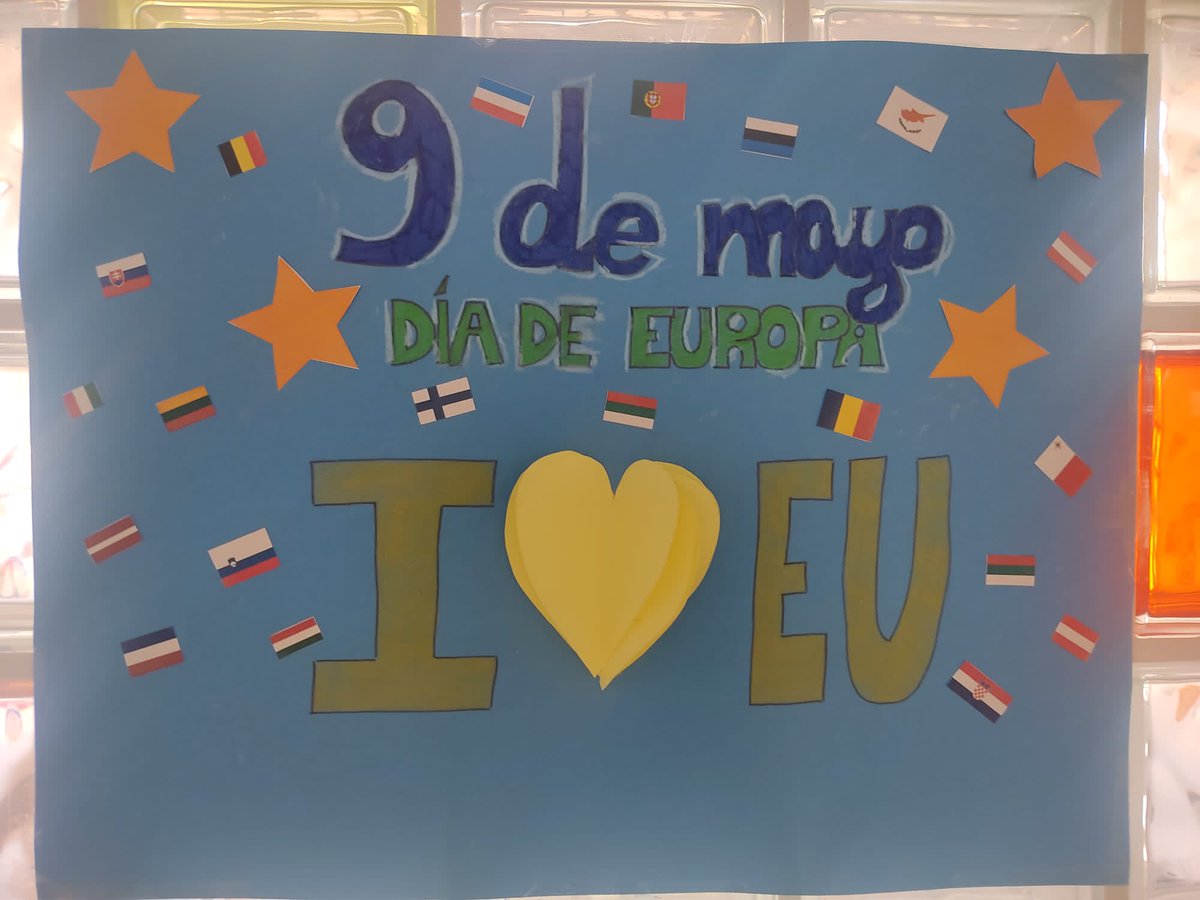 9 de mayo
DÍA DE EUROPA
I 💛 EU